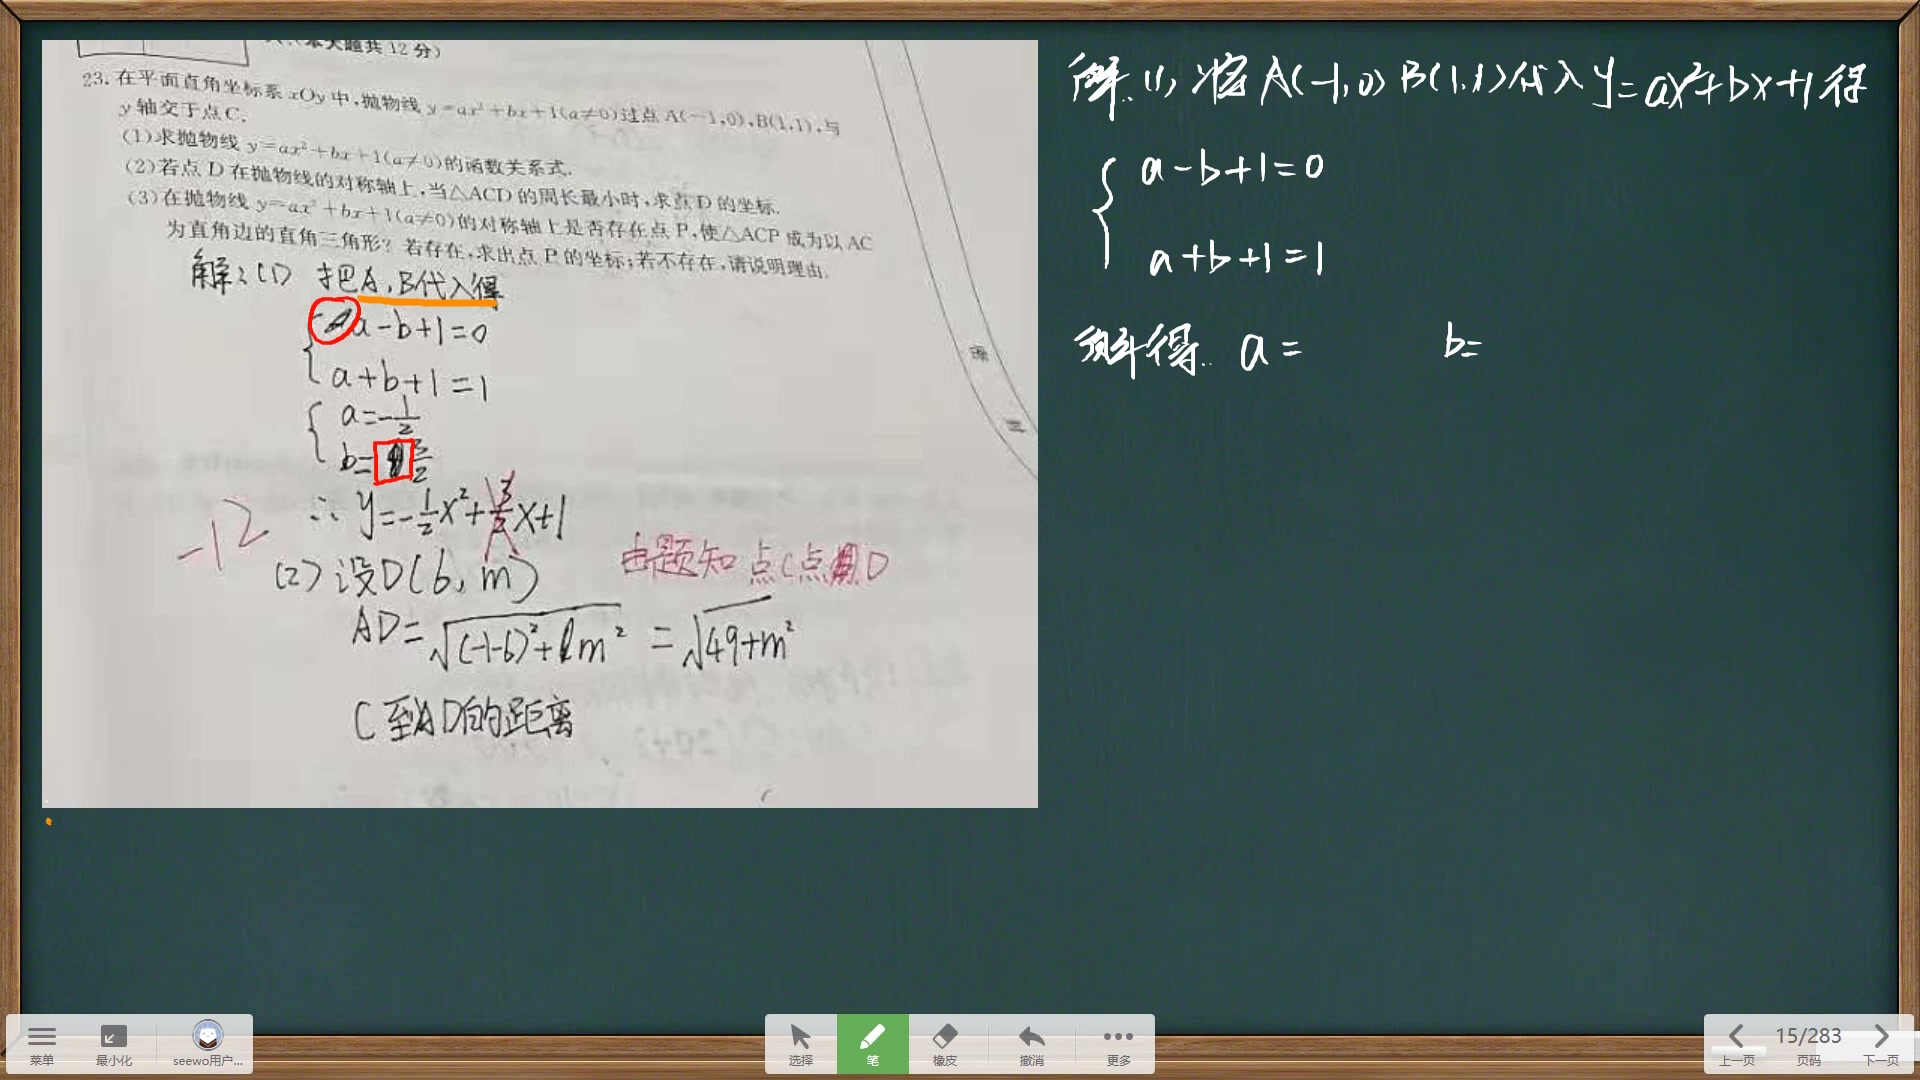 本大题共12分)
23.在平面直角坐标系xOy中,抛物线y=ax²+bx+1(a≠0)过点A(-1,0),B(1,1),与
y轴交于点C.
(1)求抛物线y=ax²+bx+1(a≠0)的函数关系式.
(2)若点D在抛物线的对称轴上,当△ACD的周长最小时,求点D的坐标.
(3)在抛物线y=ax²+bx+1(a≠0)的对称轴上是否存在点P,使△ACP成为以AC
为直角边的直角三角形?若存在,求出点P的坐标;若不存在,请说明理由.
解:(1) 把A,B代入得
a-b+1=0
a+b+1=1
a=-1/2
b=
∴ y=-1/2x²+x+1
-12
(2)设D(6,m)
由题知点C点D
AD=√(-1-6)²+m² =√49+m²
C至AD的距离
密
封
解:(1)将A(-1,0) B(1,1)代入y=ax²+bx+1得
a-b+1=0
a+b+1=1
解得: a= b=
菜单
最小化
seewo用户...
选择
笔
橡皮
撤消
更多
上一页
15/283
页码
下一页